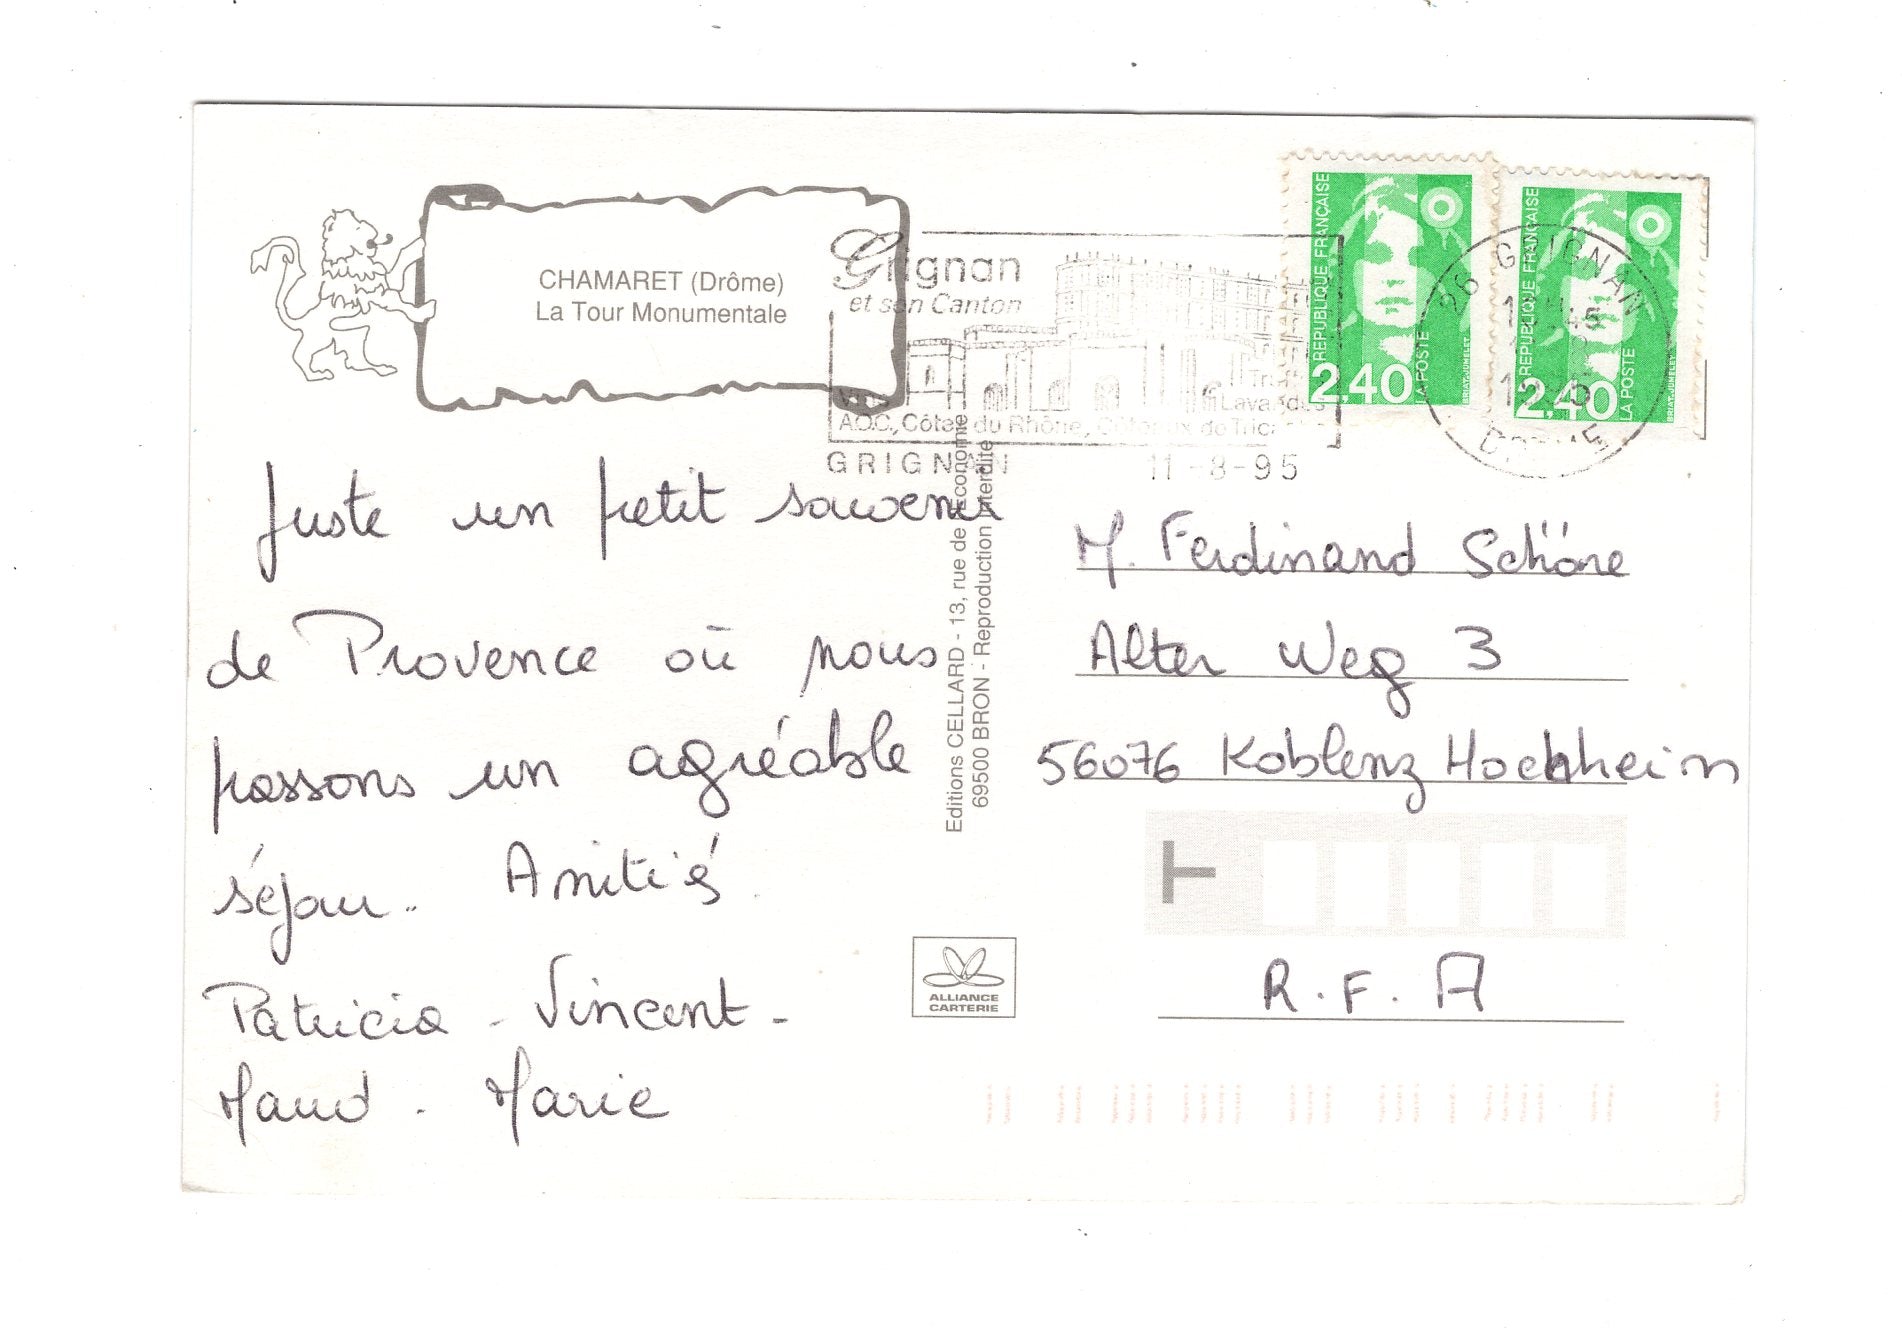 CHAMARET (Drôme)
La Tour Monumentale
Grignan
et son Canton
AOC, Côtes du Rhône, Côteaux de Tricastin
Lavandes
GRIGNAN 11-8-95
RÉPUBLIQUE FRANÇAISE
2,40
LA POSTE
BRIAT-JUMELET
RÉPUBLIQUE FRANÇAISE
2,40
LA POSTE
BRIAT-JUMELET
26 GRIGNAN
DROME
Juste un petit souvenir
de Provence où nous
passons un agréable
séjour. Amitiés.
Patricia - Vincent -
Maud - Marie
Editions CELLARD - 13, rue de l'Economie
69500 BRON - Reproduction interdite
M. Ferdinand Schöne
Alter Weg 3
56076 Koblenz Hochheim
R.F.A
ALLIANCE
CARTERIE